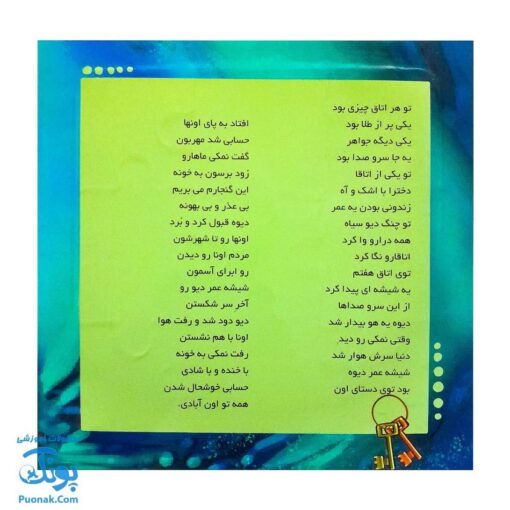 تو هر اتاق چیزی بود
یکی پر از طلا بود
یکی دیگه جواهر
یه جا سرو صدا بود
تو یکی از اتاقا
دخترا با اشک و آه
زندونی بودن یه عمر
تو چنگ دیو سیاه
همه درارو وا کرد
اتاقارو نگا کرد
توی اتاق هفتم
یه شیشه ای پیدا کرد
از این سرو صداها
دیوه یه هو بیدار شد
وقتی نمکی رو دید
دنیا سرش هوار شد
شیشه عمر دیوه
بود توی دستای اون
افتاد به پای اونها
حسابی شد مهربون
گفت نمکی ماهارو
زود برسون به خونه
این گنجارم می بریم
بی عذر و بی بهونه
دیوه قبول کرد و بُرد
اونها رو تا شهرشون
مردم اونا رو دیدن
رو ابرای آسمون
شیشه عمر دیو رو
آخر سر شکستن
دیو دود شد و رفت هوا
اونا با هم نشستن
رفت نمکی به خونه
با خنده و با شادی
حسابی خوشحال شدن
همه تو اون آبادی.
پونک
Puonak.Com